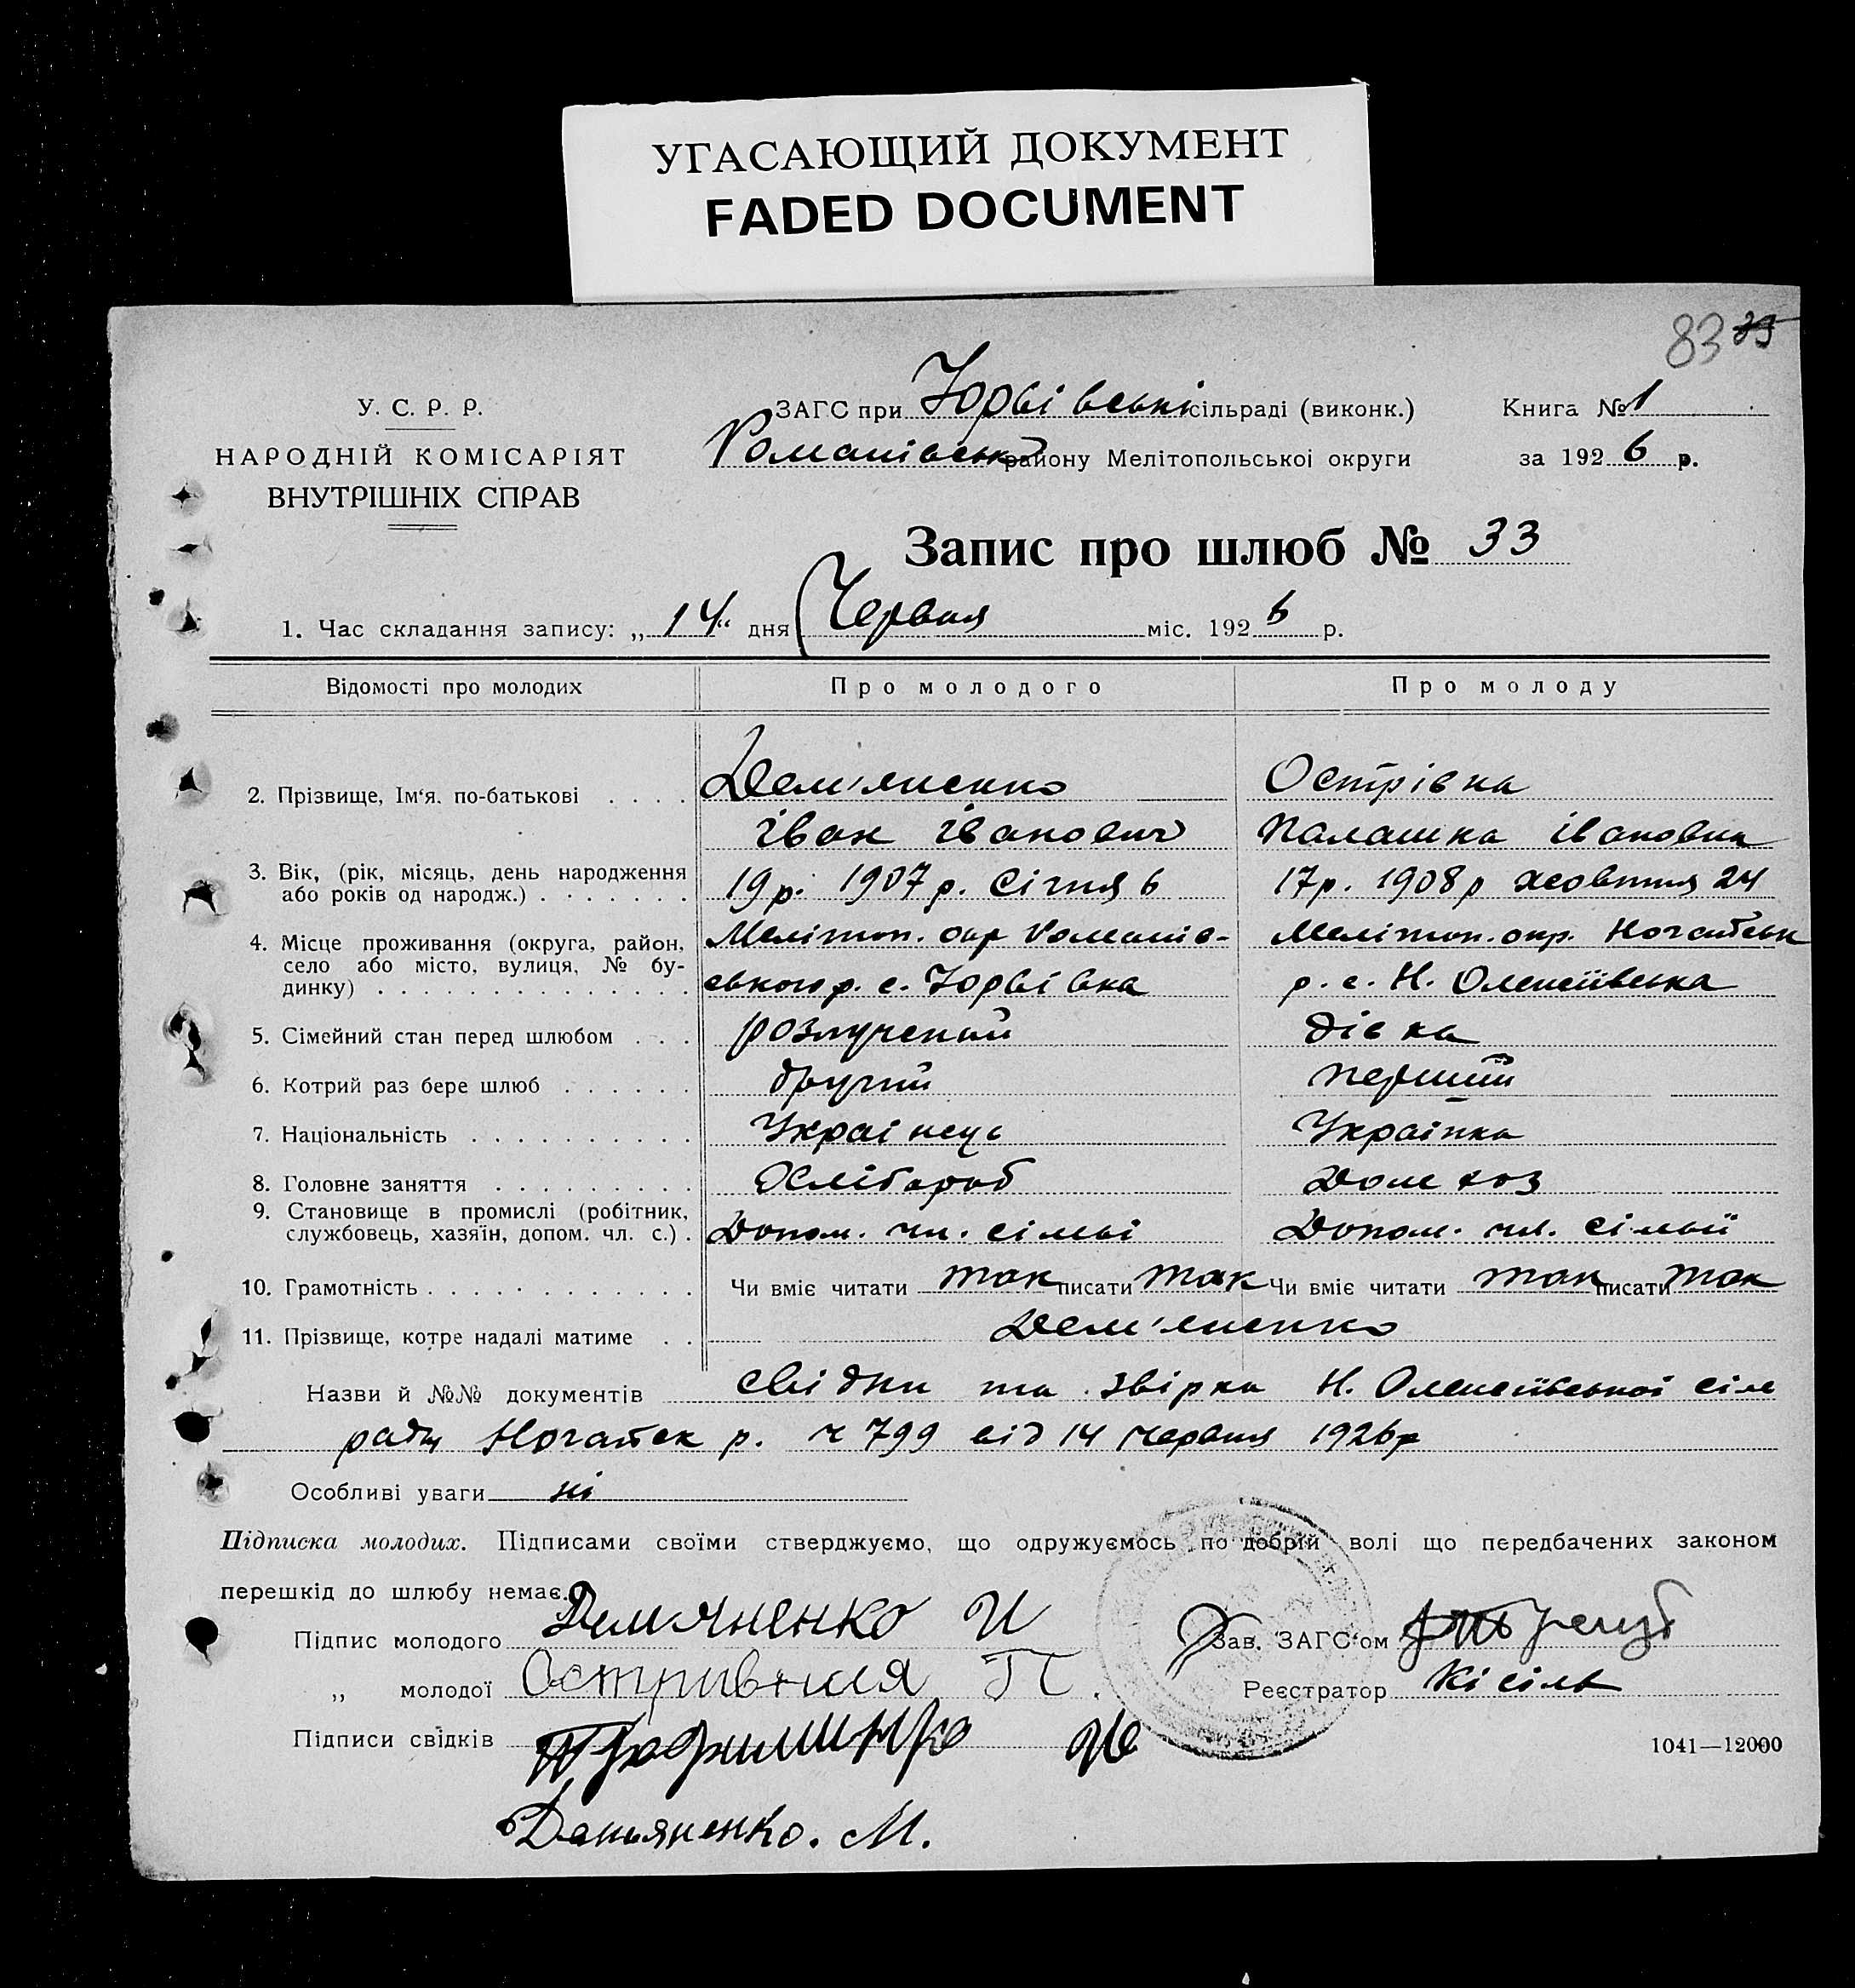 УГАСАЮЩИЙ ДОКУМЕНТ
FADED DOCUMENT
83 35
У. С. Р. Р.
НАРОДНІЙ КОМІСАРІЯТ
ВНУТРІШНІХ СПРАВ
ЗАГС при Юрвівські сільраді (виконк.)
Романівськ району Мелітопольської округи
Книга № 1
за 1926 р.
Запис про шлюб № 33
1. Час складання запису: „14“ дня Червня міс. 1926 р.
Відомості про молодих Про молодого Про молоду
2. Прізвище, Ім'я, по-батькові Дем'яненко Острівна
Іван Іванович Палашка Івановна
3. Вік, (рік, місяць, день народження 19 р. 1907 р. Січня 6 17 р. 1908 р жовтня 24
або років од народж.)
4. Місце проживання (округа, район, Меліто́п. окр Романів- Меліто́п. окр. Ногайськ
село або місто, вулиця, № бу- ського р. с. Юрвівка р. с. Н. Олексіївська
динку)
5. Сімейний стан перед шлюбом розлучений дівка
6. Котрий раз бере шлюб другий перший
7. Національність Українець Українка
8. Головне заняття Хлібороб Дом хоз
9. Становище в промислі (робітник,
службовець, хазяїн, допом. чл. с.) Допом. чл. сімьі Допом. чл. сімьї
10. Грамотність Чи вміє читати так писати так Чи вміє читати так писати так
11. Прізвище, котре надалі матиме Дем'яненко
Назви й №№ документів свідки та звірка Н. Олексіївської сіль
ради Ногайск р. ч 799 від 14 червня 1926р
Особливі уваги ні
Підписка молодих. Підписами своїми стверджуємо, що одружуємось по добрій волі що передбачених законом
перешкід до шлюбу немає.
Підпис молодого Демяненко И
„ молодої Остривная П.
Підписи свідків
Демьяненко. М.
Зав. ЗАГС'ом
Реєстратор Кісіль
1041—12000